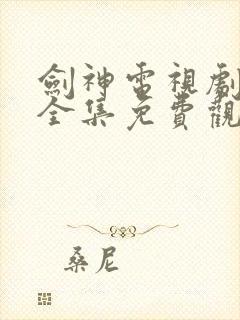 劍神電視劇
全集免費觀
桑尼